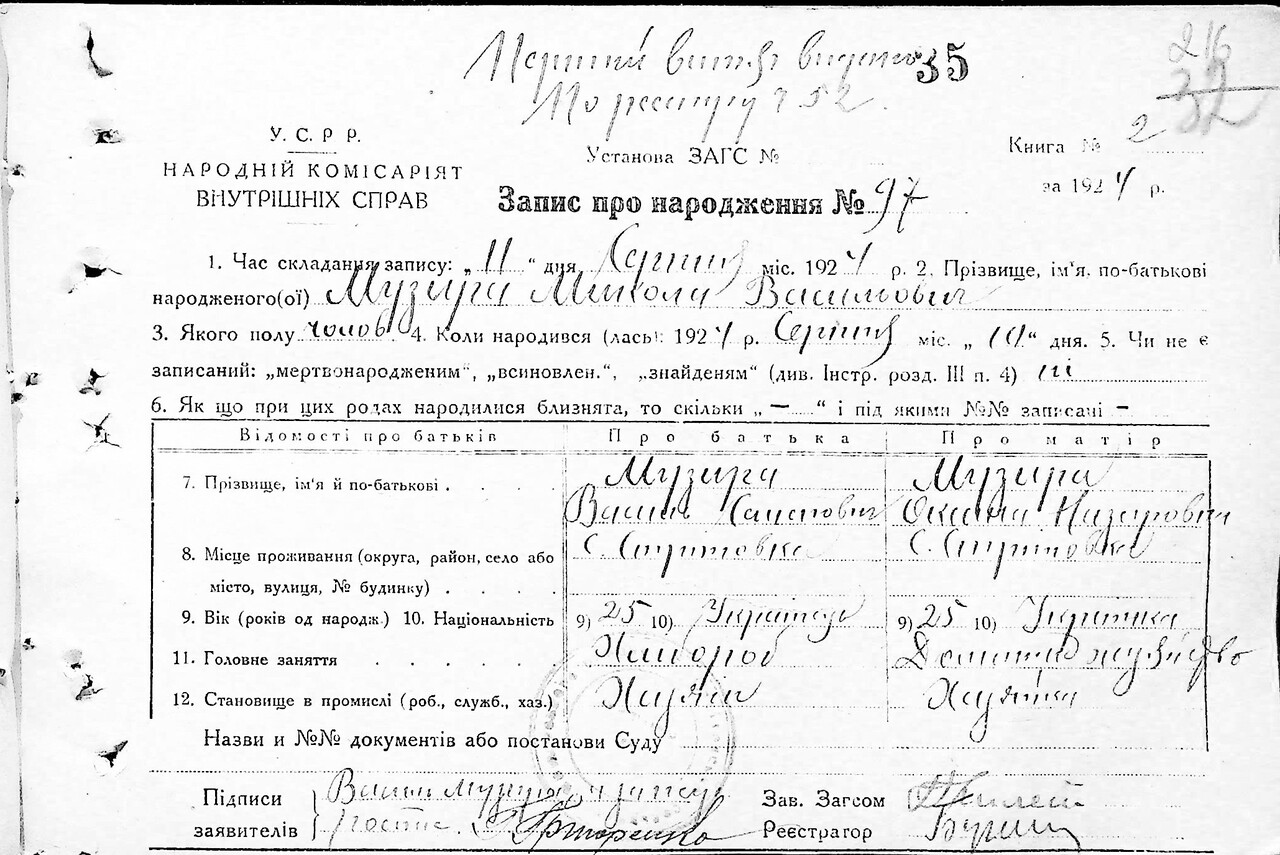 Перший витяг видано 35
По реєстру № 52.
У. С. Р. Р.
НАРОДНІЙ КОМІСАРІЯТ
ВНУТРІШНІХ СПРАВ
Установа ЗАГС №
Книга № 2
за 1924 р.
Запис про народження № 97
1. Час складання запису: „ 11 “ дня Серпня міс. 1924 р. 2. Прізвище, ім'я, по-батькові
народженого(ої) Музира Микола Васильович
3. Якого полу чолов. 4. Коли народився (лась): 1924 р. Серпня міс. „ 10 “ дня. 5. Чи не є
записаний: „мертвонародженим“, „всиновлен.“, „знайденям“ (див. Інстр. розд. III п. 4) ні
6. Як що при цих родах народилися близнята, то скільки „ — “ і під якими №№ записані —
Відомості про батьків Про батька Про матір
7. Прізвище, ім'я й по-батькові . . . . Музира Музира
Василь Оксана Назаровна
8. Місце проживання (округа, район, село або с. с.
місто, вулиця, № будинку) . . . .
9. Вік (років од народж.) 10. Національність 9) 25 10) Українець 9) 25 10) Українка
11. Головне заняття . . . . . Хлібороб
12. Становище в промислі (роб., служб., хаз.) Хазяїн Хазяйка
Назви и №№ документів або постанови Суду
Підписи Василь Музира
заявителів
Зав. Загсом
Реєстрагор